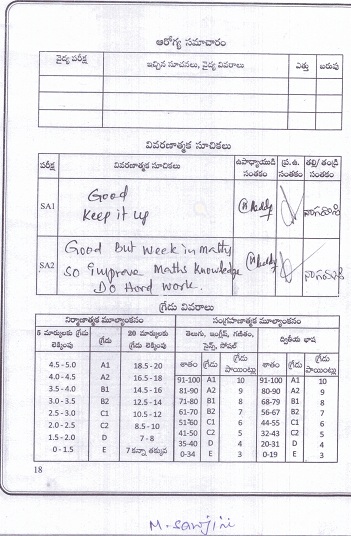 ఆరోగ్య సమాచారం
వైద్య పరీక్ష ఇచ్చిన సూచనలు, వైద్య వివరాలు ఎత్తు బరువు
వివరణాత్మక సూచికలు
పరీక్ష వివరణాత్మక సూచికలు ఉపాధ్యాయుడి సంతకం ప్ర.ఉ. సంతకం తల్లి/తండ్రి సంతకం
SA1 Good
Keep it up
SA2 Good But Week in maths
So improve Maths Knowledge
Do Hard work.
గ్రేడు వివరాలు
నిర్మాణాత్మక మూల్యాంకనం సంగ్రహణాత్మక మూల్యాంకనం
5 మార్కులకు లెక్కింపు గ్రేడు 20 మార్కులకు గ్రేడు లెక్కింపు తెలుగు, ఇంగ్లీష్, గణితం, సైన్స్, సోషల్ ద్వితీయ భాష
శాతం గ్రేడు గ్రేడు పాయింట్లు శాతం గ్రేడు గ్రేడు పాయింట్లు
4.5 - 5.0 A1 18.5 - 20 91-100 A1 10 91-100 A1 10
4.0 - 4.5 A2 16.5 - 18 81-90 A2 9 80-90 A2 9
3.5 - 4.0 B1 14.5 - 16 71-80 B1 8 68-79 B1 8
3.0 - 3.5 B2 12.5 - 14 61-70 B2 7 56-67 B2 7
2.5 - 3.0 C1 10.5 - 12 51-60 C1 6 44-55 C1 6
2.0 - 2.5 C2 8.5 - 10 41-50 C2 5 32-43 C2 5
1.5 - 2.0 D 7 - 8 35-40 D 4 20-31 D 4
0 - 1.5 E 7 కన్నా తక్కువ 0-34 E 3 0-19 E 3
18